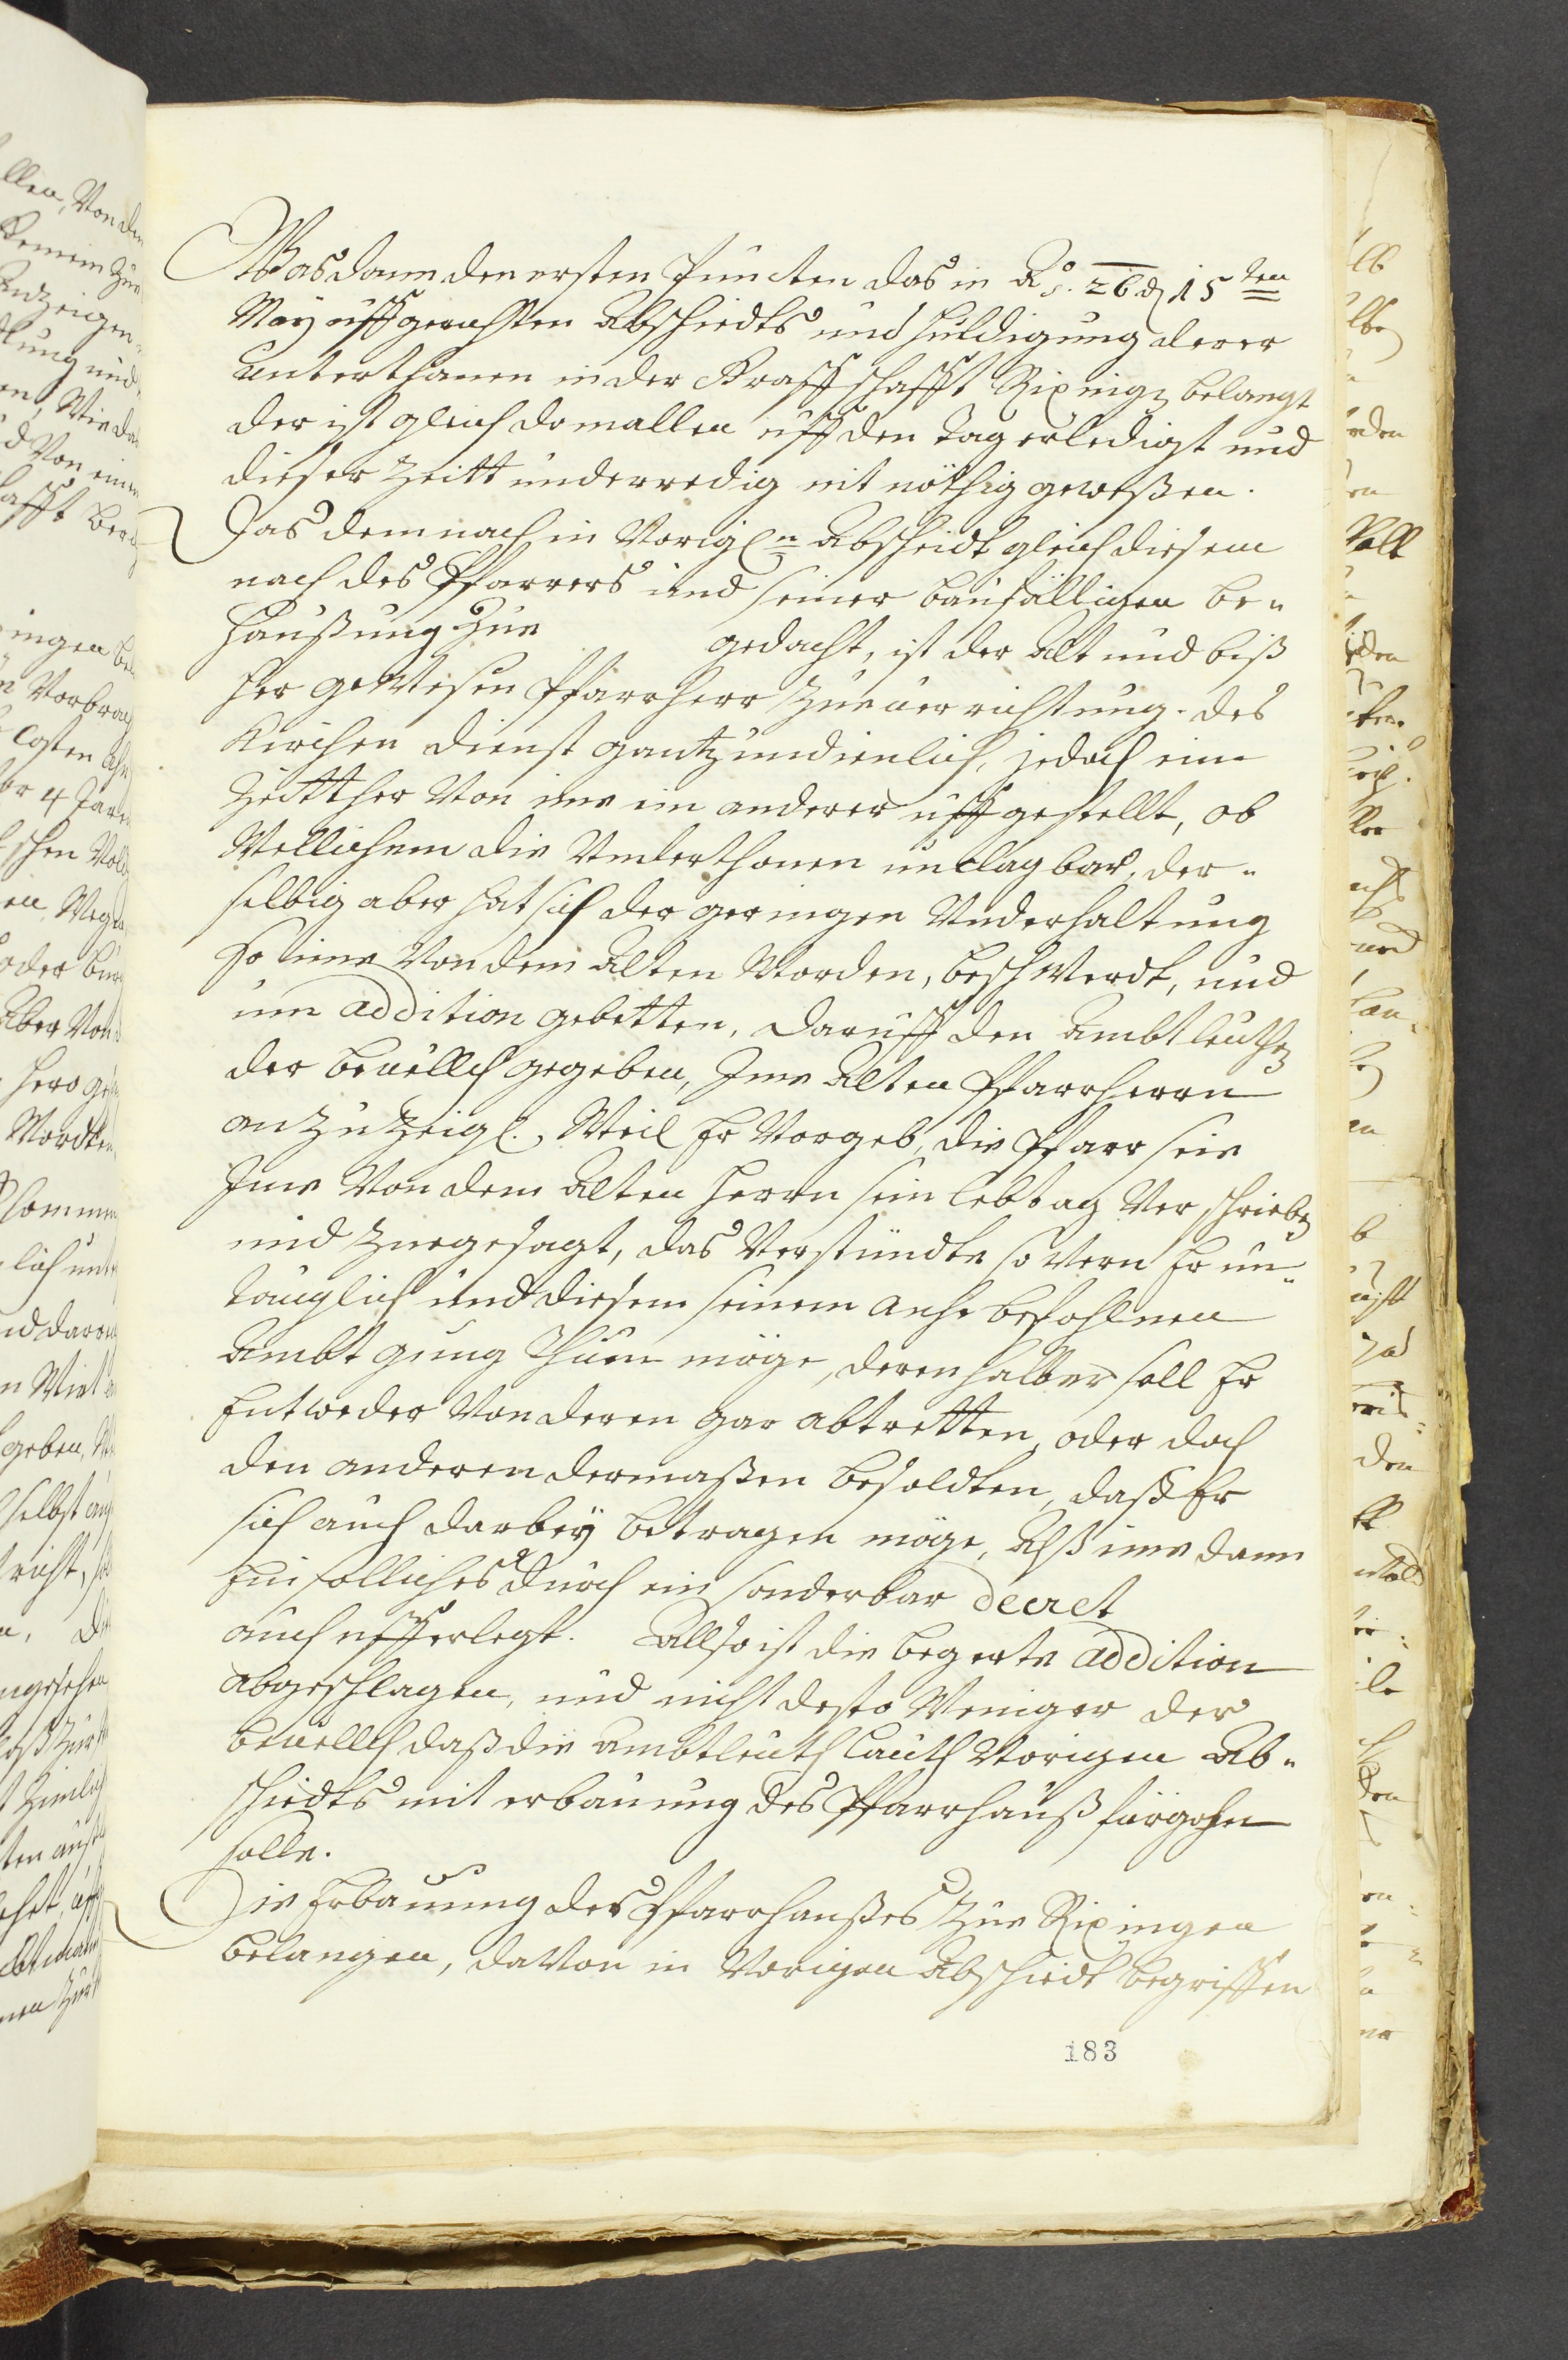 Was dann den ersten Puncten das in Aͦ. 26. den 15ten
May uffgerichten Abschiedts und Huldigung derer
Unterthanen in der Graffschafft Rixingen belangt
der ist gleich domallen uff den Tag erledigt und
dieser Zeitt underredig nit nöthig geweßen.
Das dem nach in Vorigen Abscheidt gleich diesem
nach des Pfarrers und seiner baufälligen be-
haußung Zue gedacht, ist der Alt und biß
her geWesen Pfarrherr Zue verrichtung des
Kirchen dienst gantz undienlich, jedoch ein
Zeitther Von ime ein anderer uffgestellt, ob
Wellichem die Underthonen unclagbar, der-
selbig aber hat sich der geringen Underhaltung
so ime Von dem Alten Worden, beschWerdt, und
um addition gebetten, daruff den Ambtleuthen
der bevellch gegeben, Ime Alten Pfarrherrn
anzuZeigen, Weil Er Vorgeb, die Pfarr seie
Ime Von dem Alten Herrn sein lebtag Verschrieben
und Zuegesagt, das Verstündte so Vern Er un-
tauglich und diesem seinem anbefohlnen
Ambt gnug Thuen möge, derenhalber soll Er
Entweder Von deren gar abtretten, oder doch
den anderen dermaßen besoldten, daß Er
sich auch darbey betragen möge, Alß ime dann
Ein solliches durch ein sonderbar decret
auch ufferlegt. Allso ist die begerte addition
abgeschlagen, und nicht desto Weniger der
bevellch daß die Ambtleuth lauth Vorigen Ab-
schiedts mit erbauung des Pfarrhauß fürgohn
solle.
Die Erbauung des Pfarrhaußes Zue Rixingen
belangen, daVon in Vorigen Abschiedt begriffen
183